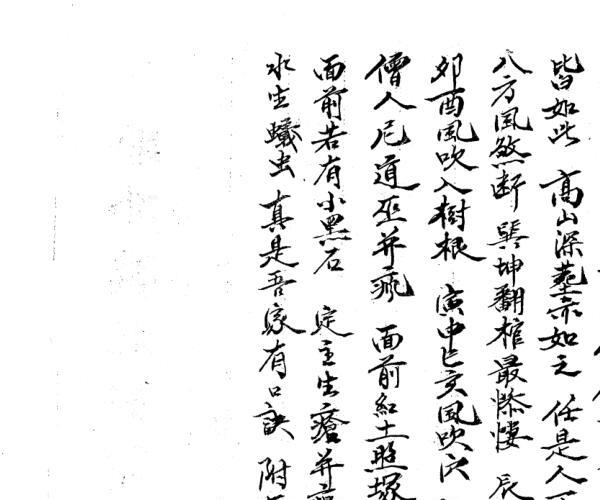 皆如此 高山深塟亦如之 任是人
八方風煞断 巽坤翻棺最惨悽 辰
夘酉風吹入樹根 寅申巳亥風吹穴
僧人尼道巫并瘋 面前紅土照塚
面前若有小黑石 定主生瘡并
水生蟻虫 真是吾家有口訣 附